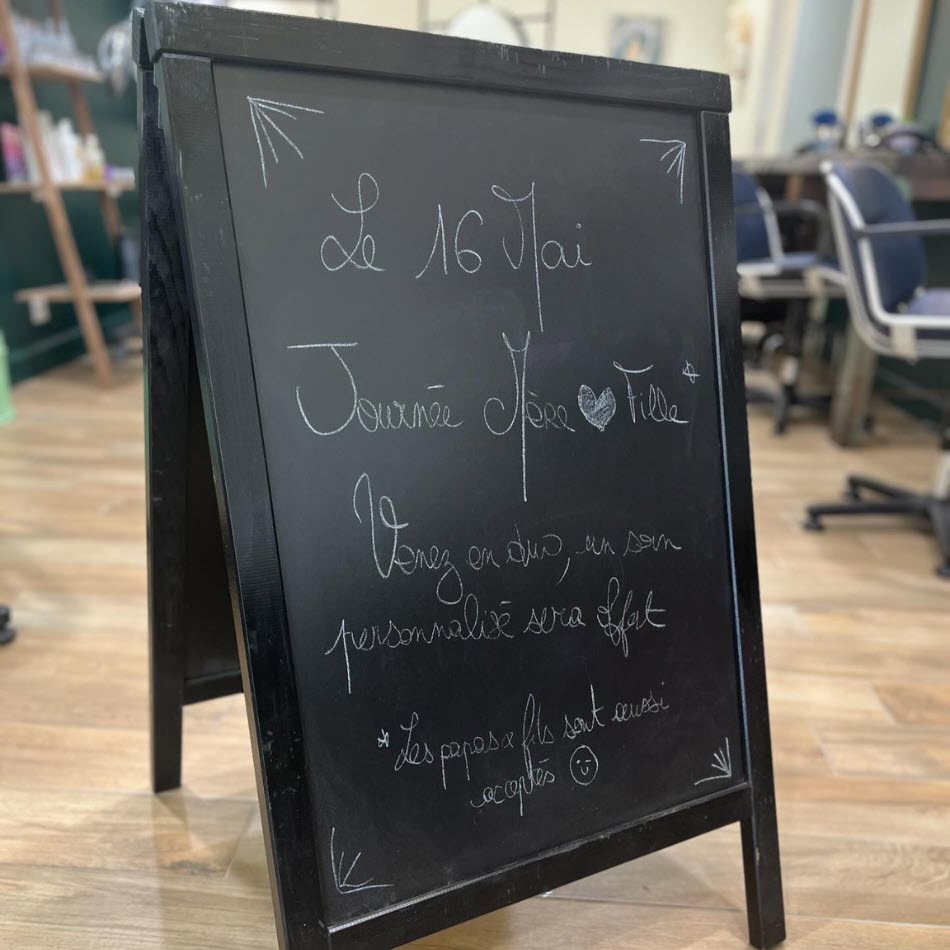 Le 16 Mai
Journée Mère ♥ Fille*
Venez en duo, un soin
personnalisé sera offert
*Les papas & fils sont aussi
acceptés ☺